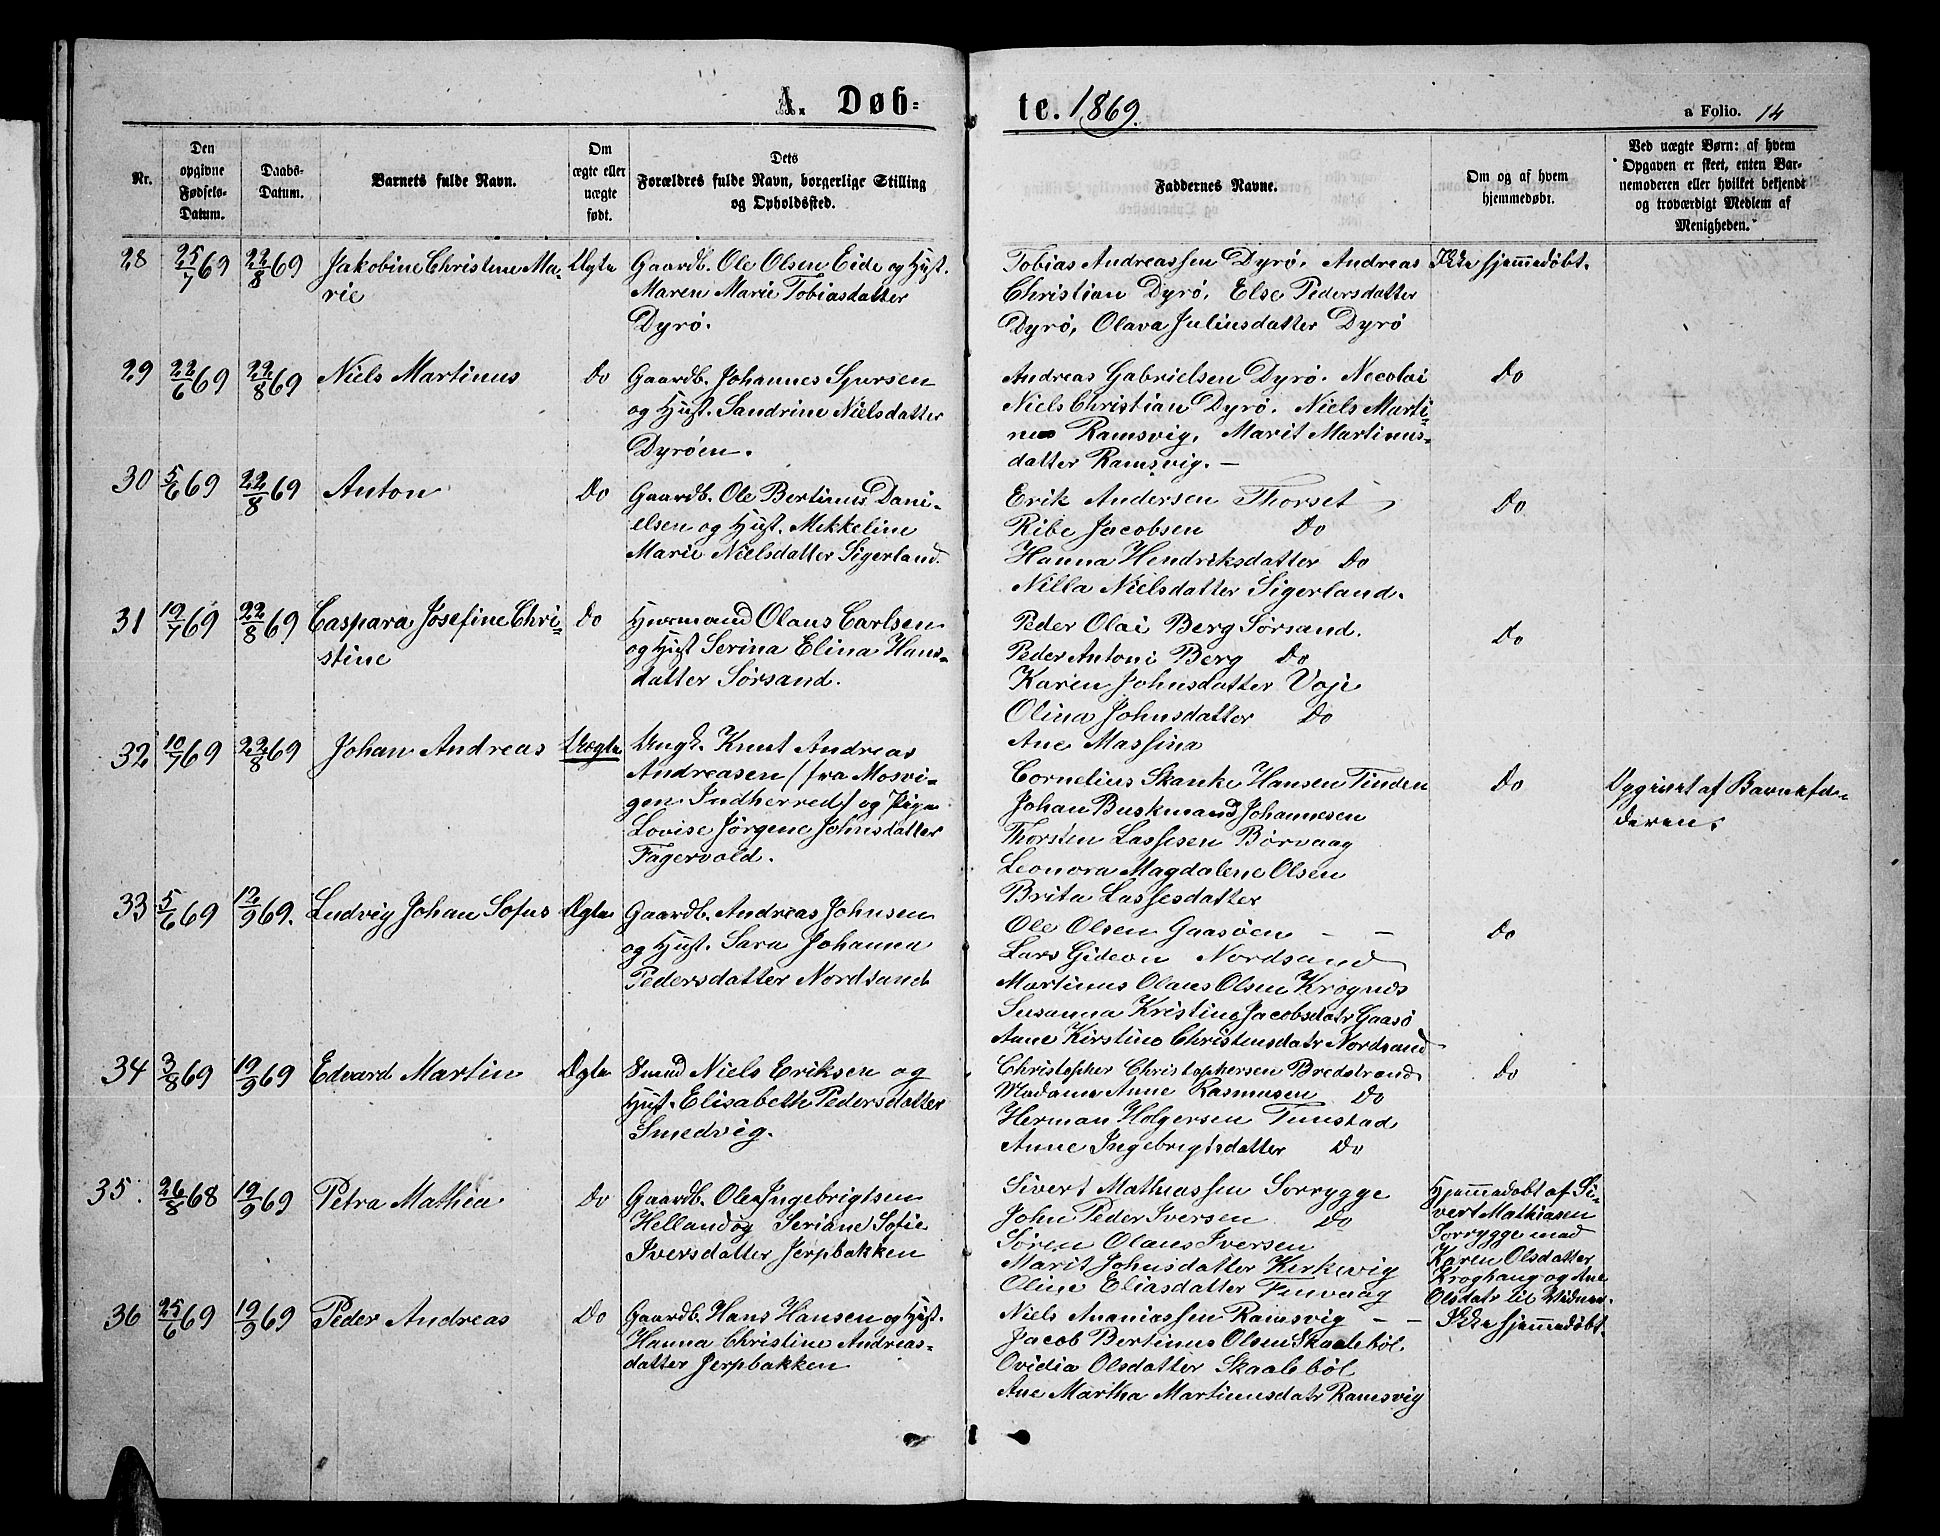 A. Døb-
te. 1869.
a Folio. 14
Nr.
Den opgivne Fødsels-Datum.
Daabs-Datum.
Barnets fulde Navn.
Om ægte eller uægte født.
Dets Forældres fulde Navn, borgerlige Stilling og Opholdssted.
Faddernes Navne.
Om og af hvem hjemmedøbt.
Ved uægte Børn: af hvem Opgaven er skeet, enten Barnemoderen eller hvilket bekjendt og troværdigt Medlem af Menigheden.
28 25/7 69 22/8 69 Jakobine Christine Ma-
rie
Ægte
Gaardb. Ole Olsen Eide og Hust.
Maren Marie Tobiasdatter
Dyrø.
Tobias Andreassen Dyrø, Andreas
Christian Dyrø, Else Pedersdatter
Dyrø, Olava Juliusdatter Dyrø
Ikke hjemmedøbt.
29 22/6 69 22/8 69 Niels Martinus
Do
Gaardb. Johannes Sjursen
og Hust. Sandrine Nielsdatter
Dyrøen.
Andreas Gabrielsen Dyrø. Necolai
Niels Christian Dyrø. Niels Marti-
nus Ramsvig, Marit Martinus-
datter Ramsvig. —
Do
30 5/6 69 22/8 69 Anton
Do
Gaardb. Ole Bertinus Dani-
elsen og Hust. Mekkeline
Marie Nielsdatter Sigerland.
Erik Andersen Thorset
Ribe Jacobsen Do
Hanna Hendriksdatter Do
Nilla Nielsdatter Sigerland.
Do
31 19/7 69 22/8 69 Caspara Josefine Chri-
stine
Do
Huusmand Olaus Carlsen
og Hust Serina Elina Hans-
datter Sørsand.
Peder Olai Berg Sørsand.
Peder Antoni Berg Do
Karin Johnsdatter Voje
Olina Johnsdatter Do
Ane Massina
Do
32 10/7 69 22/8 69 Johan Andreas
Uægte
Ungk. Knut Andreas
Andreasen (fra Mosvi-
gen Indherred) og Pige
Lovise Jørgene Johnsdatter
Fagervold.
Cornelius Skanke Hansen Tinden
Johan Buskmand Johannesen
Thorsten Lassesen Børvaag
Leonora Magdalene Olsen
Brita Lassesdatter
Do
Opgivet af Barnefa-
deren.
33 5/6 69 12/9 69. Ludvig Johan Sofus
Ægte
Gaardb. Andreas Johnsen
og Hust. Sara Johanna
Pedersdatter Nordsand
Ole Olsen Gaasøen — —
Lars Gideon Nordsand
Martinus Olaus Olsen Krognes
Susanna Kristine Jacobsdatr Gaasø
Ane Kirstine Christensdatr Nordsand
Do
34 3/8 69 19/9 69 Edvard Martin
Ægte
Smed Niels Eriksen og
Hust. Elisabeth Pedersdatter
Smedvig.
Christopher Christophersen Bredstrand
Madame Anne Rasmusen Do
Herman Holgersen Tunstad
Anne Ingebrigtsdatter Do
Do
35. 26/8 68 19/9 69 Petra Mathea
Do
Gaardb. Ole Ingebrigtsen
Helland og Seriane Sofie
Iversdatter Jerpbakken
Sivert Mathiassen Sorrygge
John Peder Iversen Do
Søren Olaus Iversen
Marit Johnsdatter Kirkevig
Oline Eliasdatter Finvaag
Hjemmedøbt af Si-
vert Mathiasen
Sorrygge med
Karen Olsdatter
Kroghaug og Ane
Olsdatr til Vidner.
36 25/6 69 19/9 69 Peder Andreas
Do
Gaardb. Hans Hansen og Hust.
Hanna Christine Andreas-
datter Jerpbakken
Niels Ananiassen Ramsvig — —
Jacob Bertinus Olsen Skaalebøl
Ovidia Olsdatter Skaalebøl
Ane Martha Martinusdatr Ramsvig
Ikke hjemmedøbt.